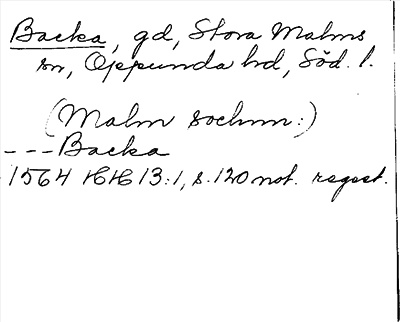 Backa, gd, Stora Malms
sn, Oppunda hd, Söd. l.
(Malm sochnn:)
---Backa
1564 HH 13:1, s. 120 not. regest.